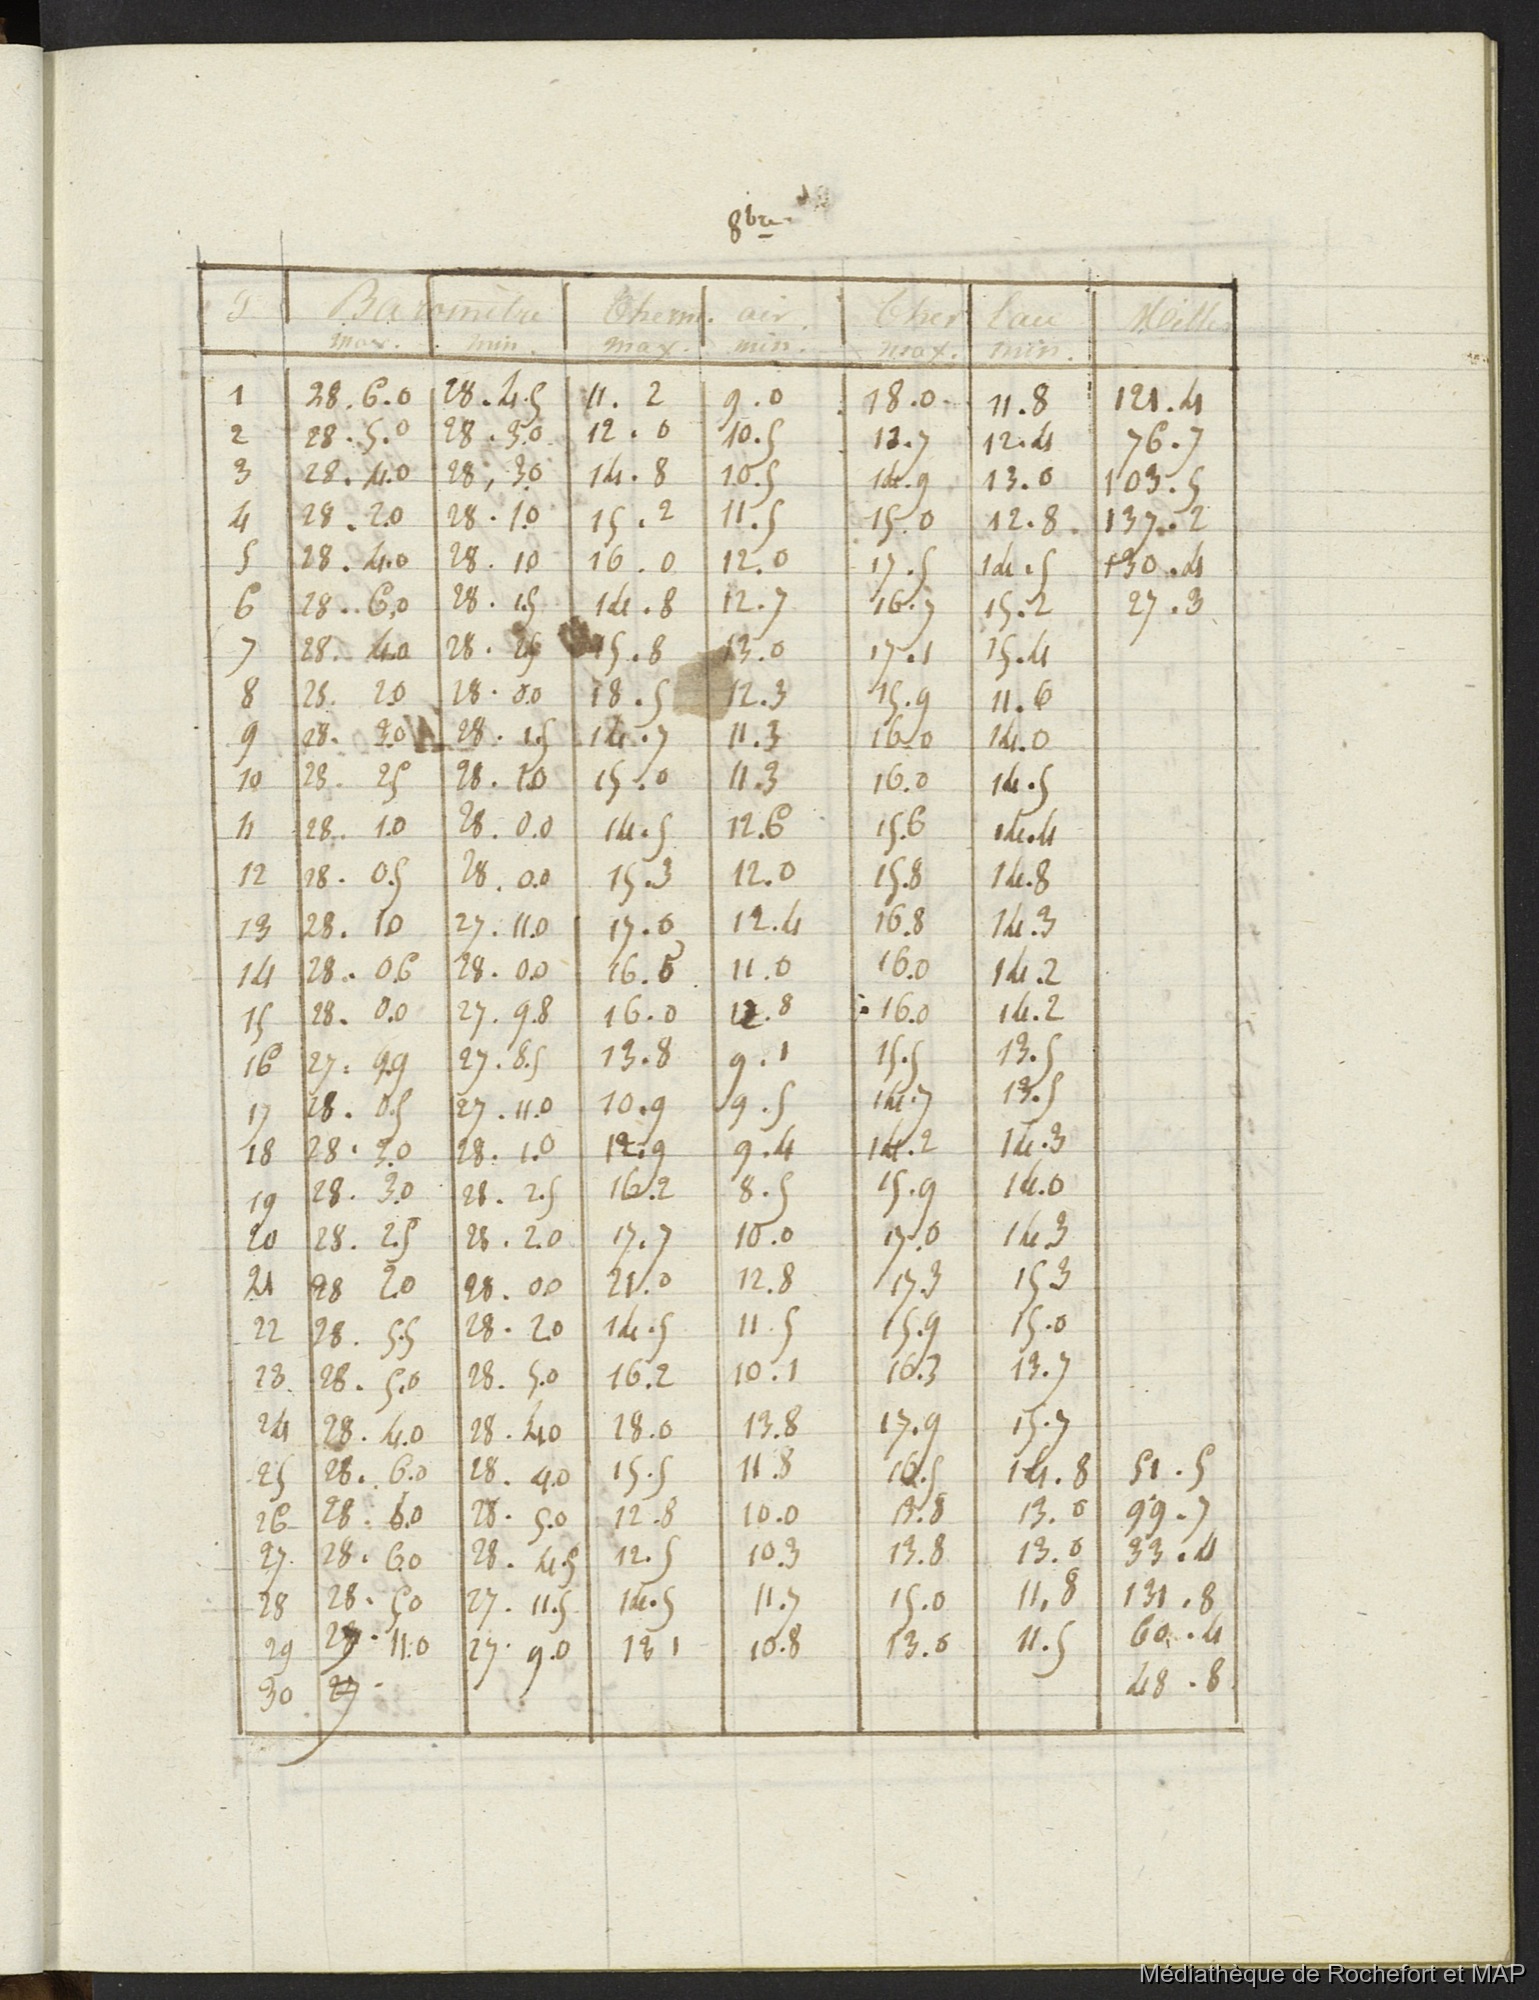 8bre
J Baromètre Therm. air Ther Eau Milles
max. min. max. min. max. min.
1 28.6.0 28.4.5 11.2 9.0 18.0 11.8 121.4
2 28.5.0 28.50 12.0 10.5 12.7 12.4 76.7
3 28.4.0 28,30 14.8 10.5 14.9 13.0 103.5
4 28.20 28.10 15.2 11.5 15.0 12.8 137.2
5 28.4.0 28.10 16.0 12.0 17.5 14.5 130.4
6 28.6.0 28.1.5 14.8 12.7 16.7 15.2 27.3
7 28.4.0 28.25 15.8 13.0 17.1 15.4
8 28.20 28.00 18.5 12.3 15.9 11.6
9 28.3.0 28.1.5 14.7 11.3 16.0 14.0
10 28.25 28.1.0 15.0 11.3 16.0 14.5
11 28.1.0 28.0.0 14.5 12.6 15.6 14.4
12 28.0.5 28.0.0 15.3 12.0 15.8 14.8
13 28.10 27.11.0 17.0 12.4 16.8 14.3
14 28.06 28.00 16.5 11.0 16.0 14.2
15 28.0.0 27.9.8 16.0 12.8 16.0 14.2
16 27.9.9 27.8.5 13.8 9.1 15.5 13.5
17 28.0.5 27.11.0 10.9 9.5 14.7 13.5
18 28.3.0 28.1.0 12.9 9.4 14.2 14.3
19 28.3.0 28.2.5 16.2 8.5 15.9 14.0
20 28.2.5 28.2.0 17.7 10.0 17.0 14.3
21 28 2.0 28.00 21.0 12.8 17.3 15.3
22 28.5.5 28.20 14.5 11.5 15.9 15.0
23 28.5.0 28.5.0 16.2 10.1 16.3 13.7
24 28.4.0 28.40 18.0 13.8 17.9 15.7
25 28.6.0 28.4.0 15.5 11.8 16.5 14.8 51.5
26 28.6.0 28.5.0 12.8 10.0 13.8 13.0 99.7
27 28.6.0 28.4.5 12.5 10.3 13.8 13.0 33.4
28 28.50 27.11.5 14.5 11.7 15.0 11,8 131.8
29 27.11.0 27.9.0 13 1 10.8 13.0 11.5 60.4
30 27. 48.8
Médiathèque de Rochefort et MAP